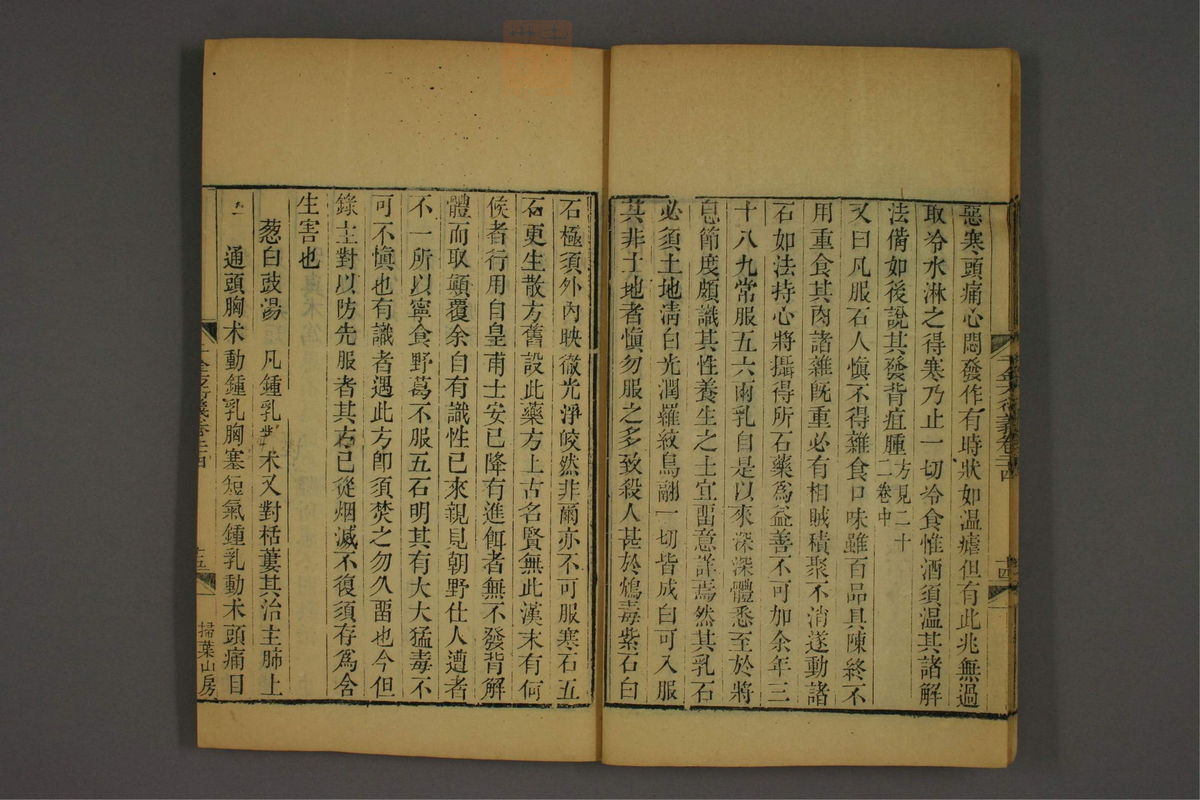 惡寒頭痛心悶發作有時狀如温瘧但有此兆無過
取冷水淋之得寒乃止一切冷食惟酒須温其諸解
法備如後說其發背疽腫方見二十二卷中
又曰凡服石人慎不得雜食口味雖百品具陳終不
用重食其肉諸雜旣重必有相賊積聚不消遂動諸
石如法持心將攝得所石藥爲益善不可加余年三
十八九常服五六兩乳自是以來深深體悉至於將
息節度頗識其性養生之士宜畱意詳焉然其乳石
必須土地淸白光潤羅紋鳥翮一切皆成白可入服
其非土地者愼勿服之多致殺人甚於鴆毒紫石白
石極須外內映徹光淨皎然非爾亦不可服寒石五
石更生散方舊設此藥方上古名賢無此漢末有何
侯者行用自皇甫士安已降有進餌者無不發背解
體而取顚覆余自有識性已來親見朝野仕人遭者
不一所以寧食野葛不服五石明其有大大猛毒不
可不愼也有識者遇此方卽須焚之勿久畱也今但
錄主對以防先服者其方已從烟滅不復須存爲含
生害也
葱白豉湯　凡鍾乳對术又對栝蔞其治主肺上
通頭胸术動鍾乳胸塞短氣鍾乳動术頭痛目
千金方衍義卷二十四
十四
千金方衍義卷二十四
十五
掃葉山房